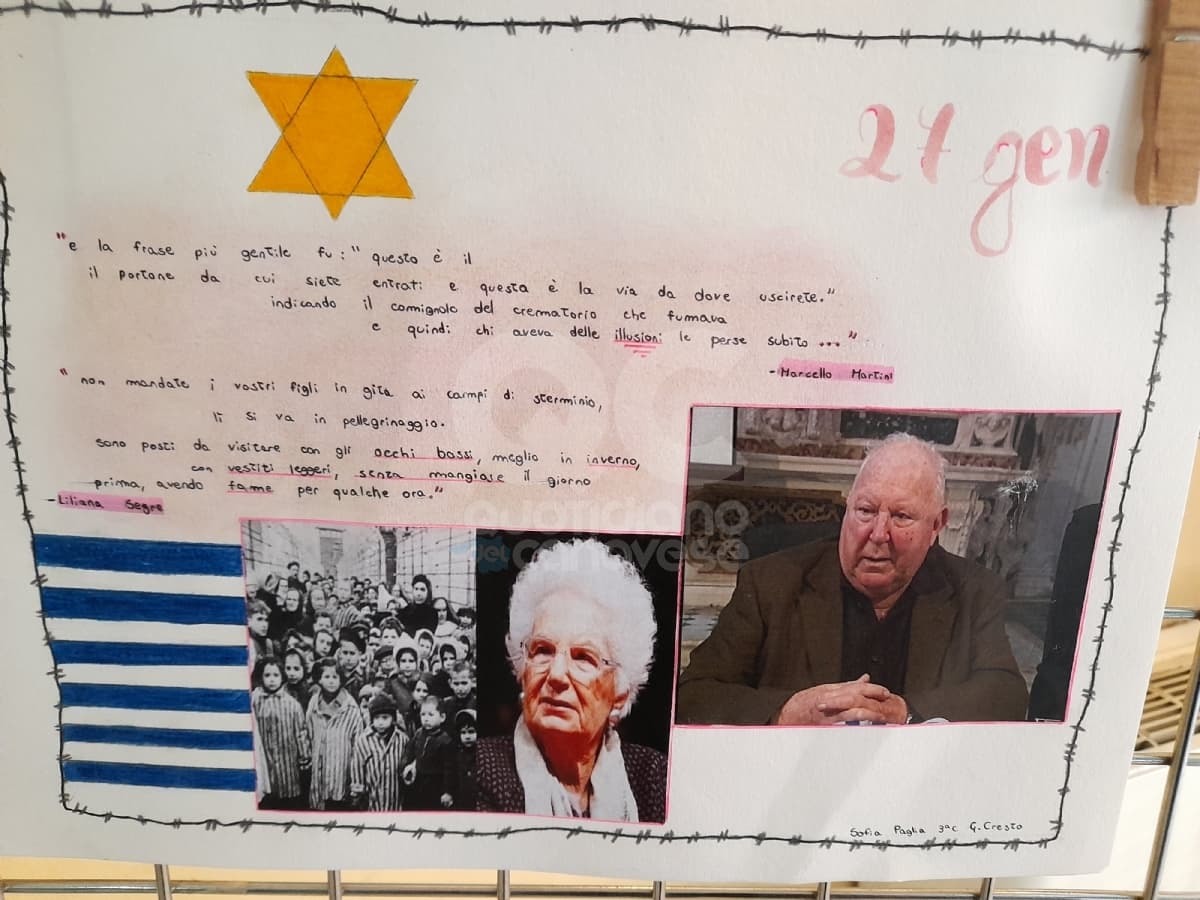 27 gen
"e la frase più gentile fu:" questo è il
il portone da cui siete entrati e questa è la via da dove uscirete."
indicando il comignolo del crematorio che fumava
e quindi chi aveva delle illusioni le perse subito ..."
- Marcello Martini
" non mandate i vostri figli in gita ai campi di sterminio,
lì si va in pellegrinaggio.
sono posti da visitare con gli occhi bassi, meglio in inverno,
con vestiti leggeri, senza mangiare il giorno
prima, avendo fame per qualche ora."
- Liliana Segre
QC
quotidiano
del canavese
Sofia Paglia 3ªc G. Cresto